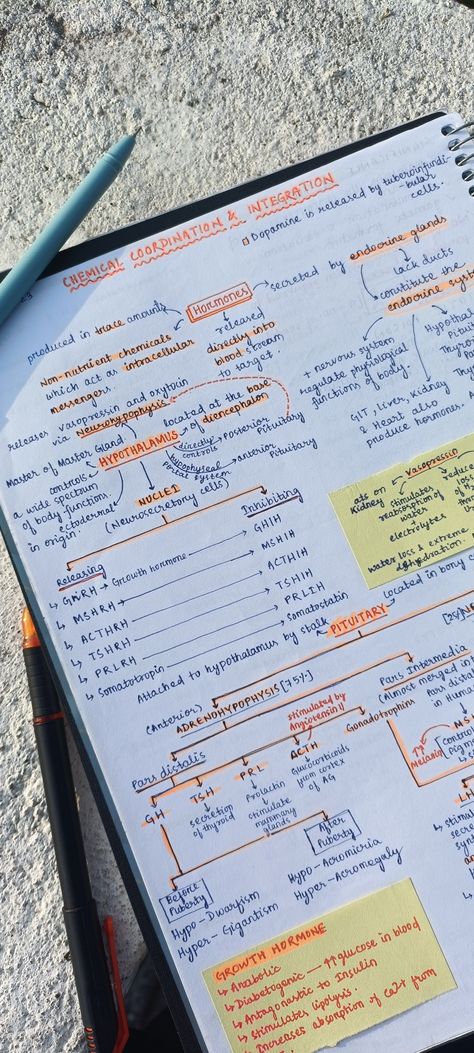 CHEMICAL COORDINATION & INTEGRATION
Dopamine is released by tuberoinfundi-
-bular
cells.
Hormones
secreted by endocrine glands
lack ducts
constitute the
endocrine
produced in trace amounts
Non-nutrient chemicals
which act as intracellular
messengers.
released
directly into
blood stream
to target.
+ nervous system
regulate physiological
functions of body.
GIT, liver, kidney
& Heart also
produce hormones.
releases vasopressin and oxytoin
via Neurohypophysis
Master of Master Gland
HYPOTHALAMUS
located at the base
of diencephalon
directly
controls
Posterior
Pituitary
hypophyseal
Portal system
anterior
Pituitary
controls
a wide spectrum
of body function.
ectodermal
in origin.
NUCLEI
(Neurosecretory cells)
Releasing
Inhibiting
GHRH → Growth hormone
GHIH
MSHRH
MSHIH
ACTHRH
ACTHIH
TSHRH
TSHIH
PRLRH
PRLIH
Somatotropin
Somatostatin
vasopressin
acts on
Kidney
stimulates
reabsorption of
water
+
electrolytes
water loss & extreme
dehydration.
Attached to hypothalamus by stalk
PITUITARY
located in bony
(Anterior)
ADRENOHYPOPHYSIS [75%]
Pars Intermedia
(Almost merged in
Pars dista
in Hum
Pars distalis
stimulated by
Angiotensin II
GH
TSH
PRL
ACTH
Gonadotrophins
secretion
of thyroid
Prolactin
stimulate
mammary
glands
Glucocorticoids
from cortex
of AG
Melanin
Before
Puberty
Hypo - Dwarfism
Hyper - Gigantism
After
Puberty
Hypo - Acromicria
Hyper - Acromegaly
GROWTH HORMONE
Anabolic
Diabetogenic — ↑↑ glucose in blood
Antagonastic to Insulin
stimulates lipolysis.
Increases absorption of Ca2+ from